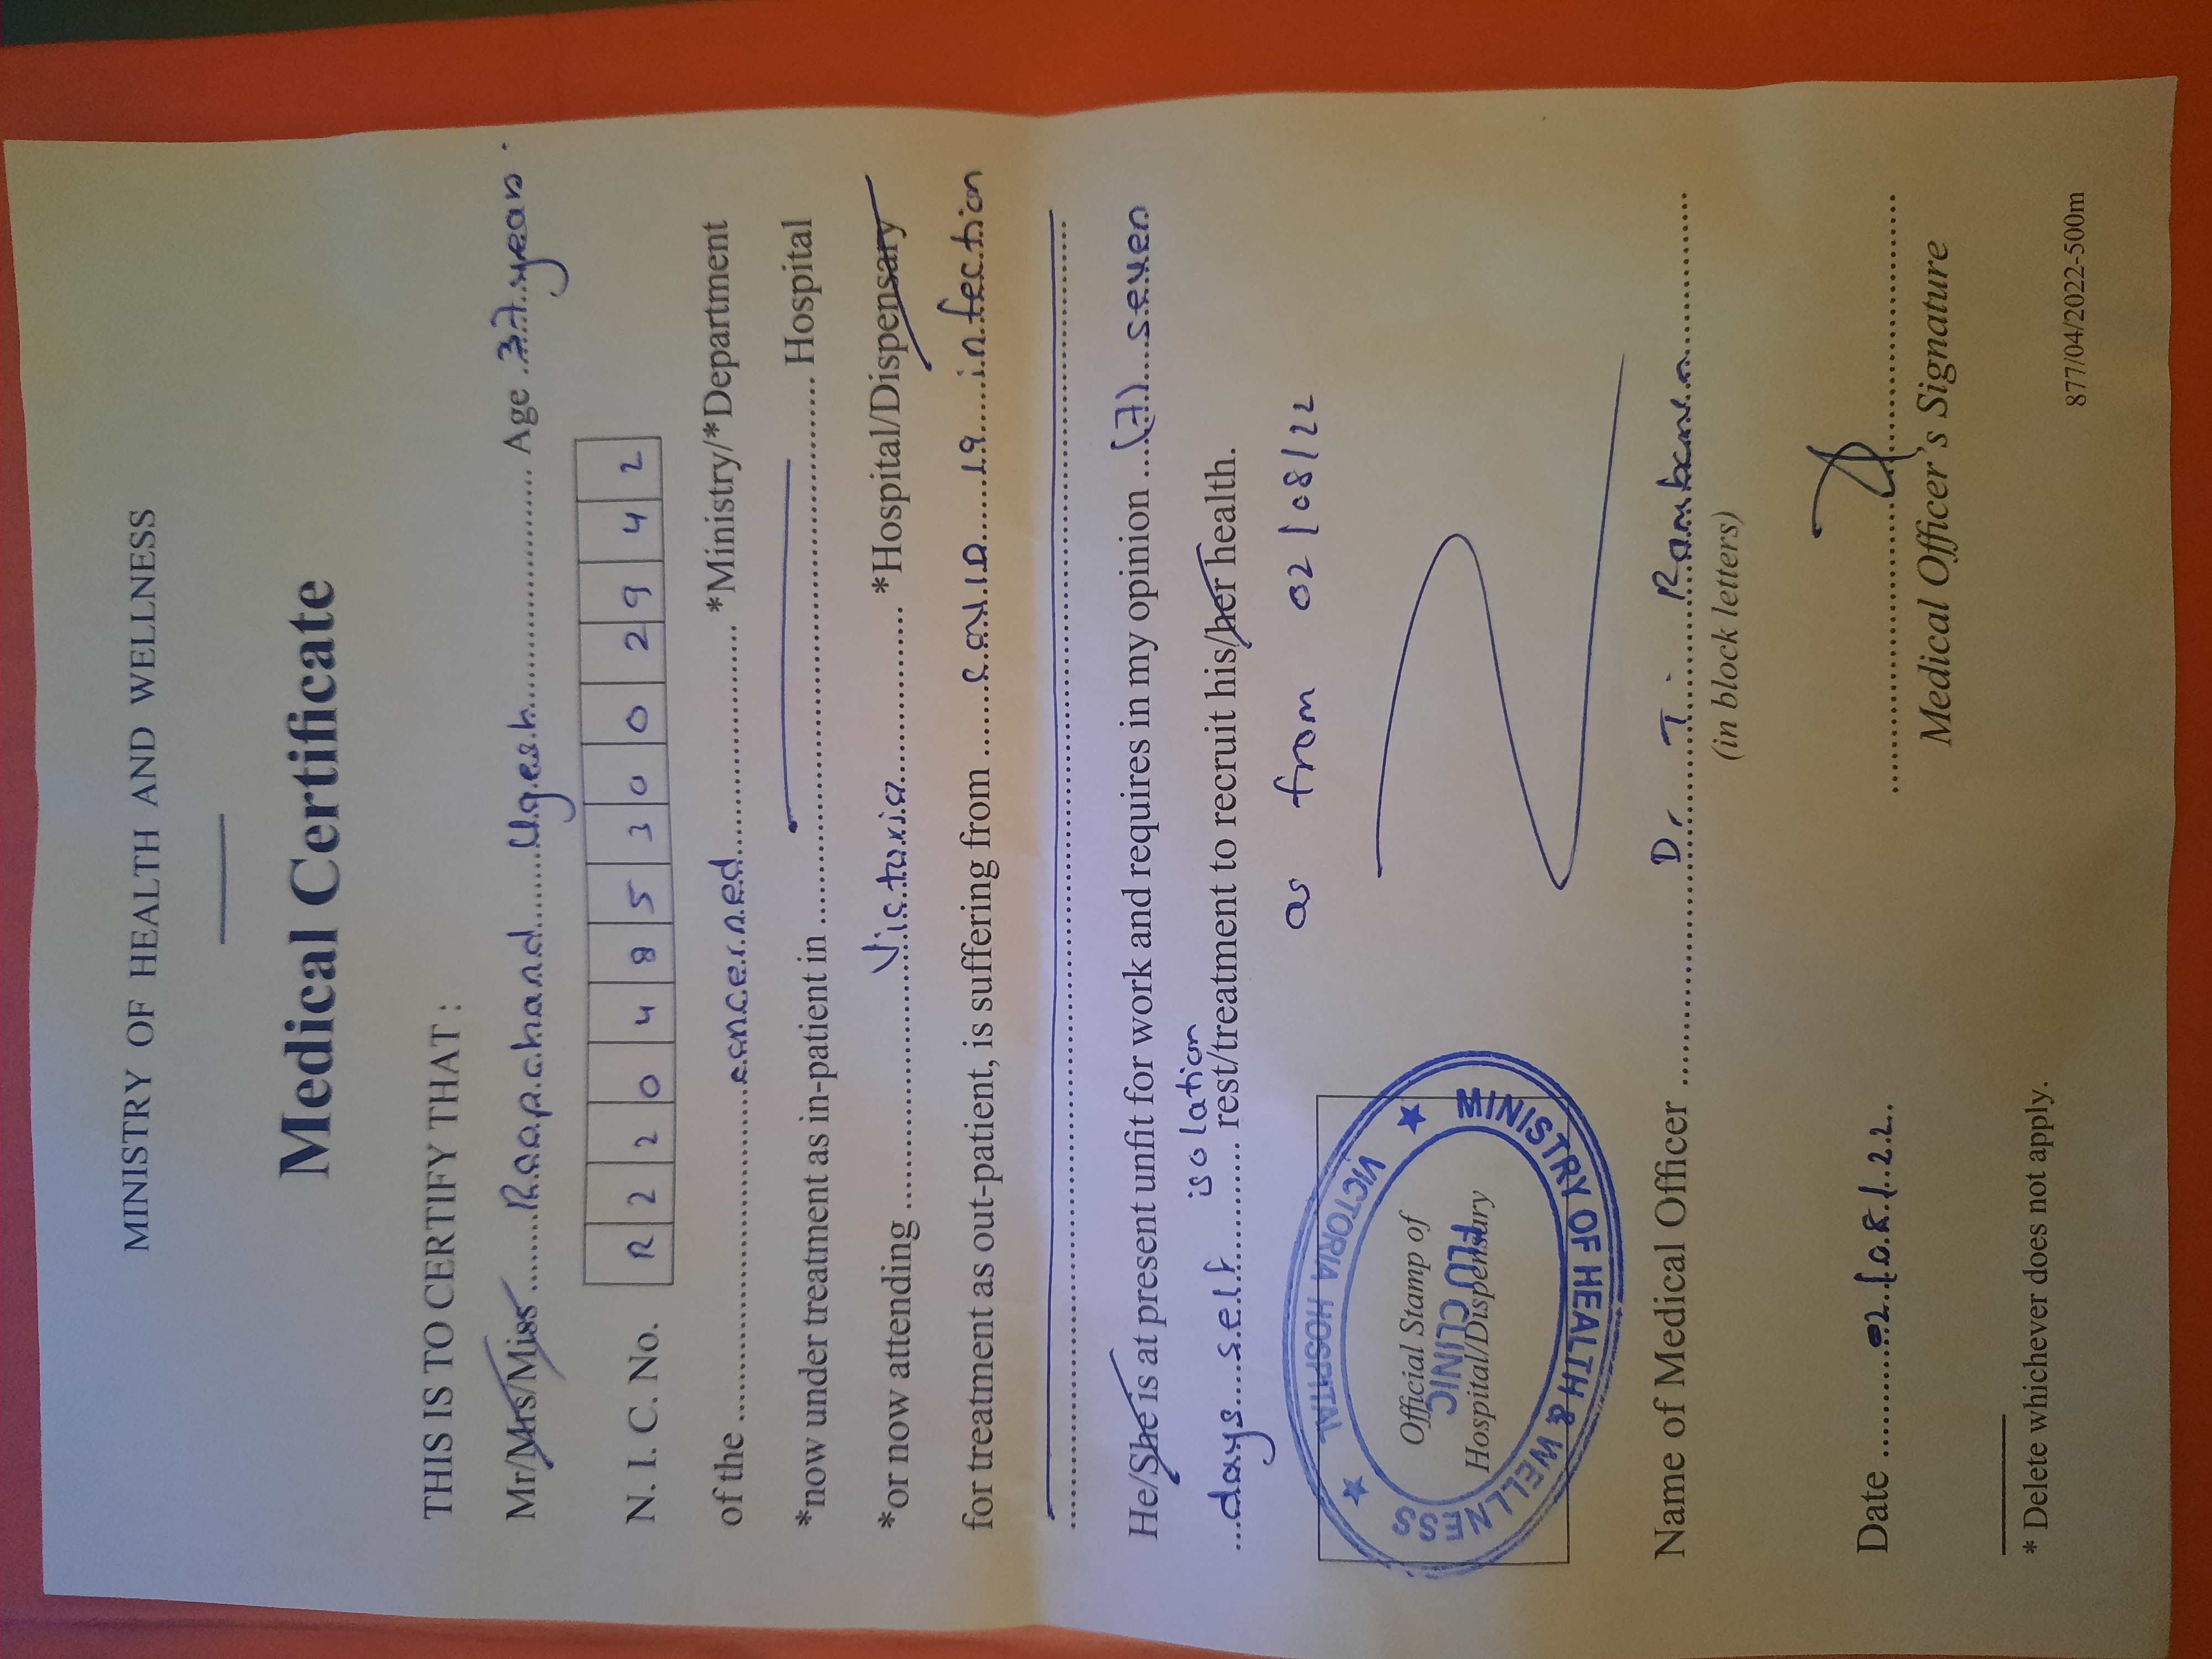 MINISTRY OF HEALTH AND WELLNESS
Medical Certificate
THIS IS TO CERTIFY THAT :
Mr/Mrs/Miss ........Roopchand.......Ugesh........................ Age .37.years
N. I. C. No. R 2 2 0 4 8 5 3 0 0 2 9 4 2
of the ..............................concerned..................... *Ministry/*Department
*now under treatment as in-patient in .................................................. Hospital
*or now attending ......................Victoria................ *Hospital/Dispensary
for treatment as out-patient, is suffering from .......COVID......19.....infection
He/She is at present unfit for work and requires in my opinion ...(7)....seven
isolation
...days....self.......... rest/treatment to recruit his/her health.
as from 02/08/22
VICTORIA HOSPITAL
Official Stamp of
FLU CLINIC
Hospital/Dispensary
MINISTRY OF HEALTH & WELLNESS
Name of Medical Officer .................... Dr T.
(in block letters)
Date ..........02/08/22.
Medical Officer's Signature
* Delete whichever does not apply.
877/04/2022-500m